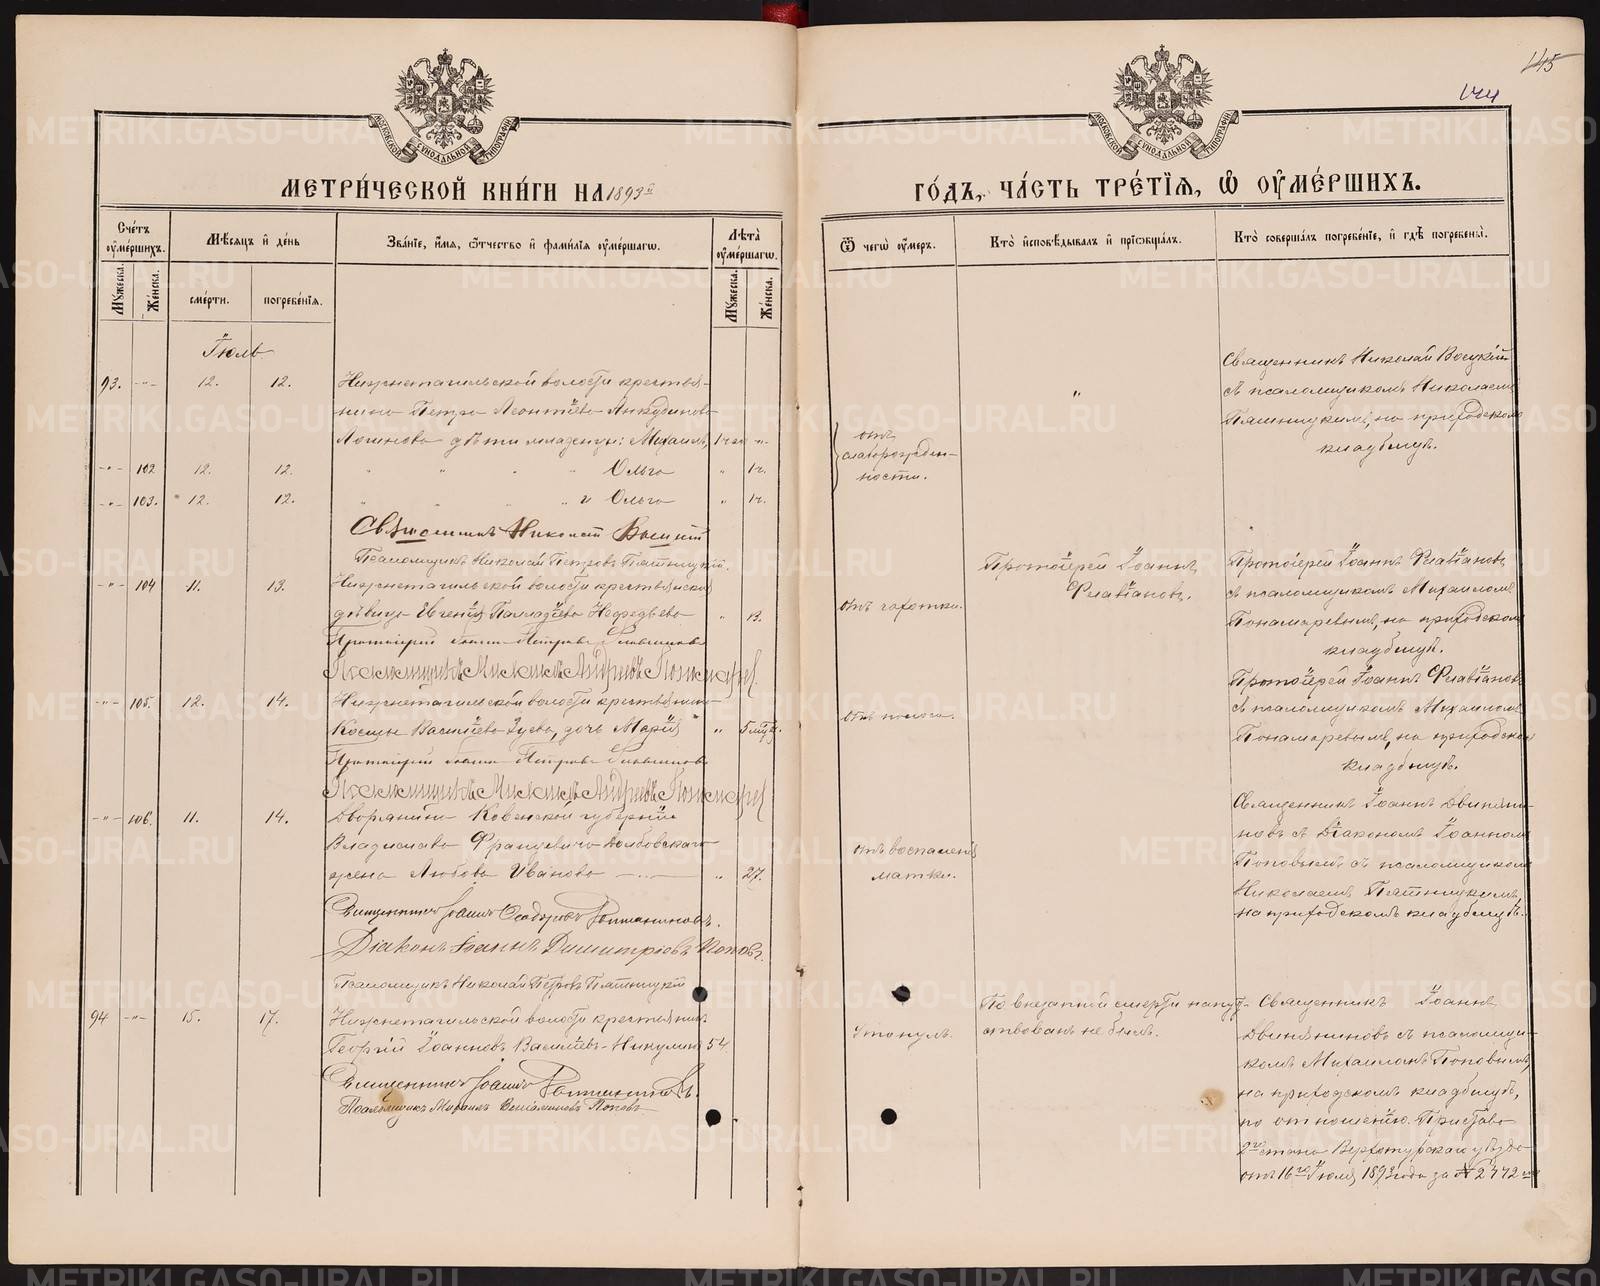 145
144
МЕТРИ́ЧЕСКОЙ КНИ́ГИ НА 1893й
ГО́ДЪ, ЧА́СТЬ ТРЕ́ТІѦ, Ѡ ОУМЕ́РШИХЪ.
Сче́тъ оуме́ршихъ.
Мѣ́сяцъ и де́нь
Зва́нїе, и́мѧ, ѻ́тчество и фами́лїѧ оуме́ршагѡ.
Лѣта̀ оуме́ршагѡ.
Ѿ чегѡ̀ оу́меръ.
Кто̀ исповѣ́дывалъ и прїѡбща́лъ.
Кто̀ соверша́лъ погребе́нїе, и гдѣ̀ погребены̀.
Мꙋ́жеска.
Же́нска.
сме́рти.
погребе́нїѧ.
Мꙋ́жеска.
Же́нска.
Іюль
93. -"- 12. 12. Нижнетагильской волости крестья-
нина Петра Леонтіева Анкудинова
Логинова дѣти младенцы: Михаилъ, 1 час -"-
-"- 102 12. 12. " " " " Ольга " 1ч.
-"- 103. 12. 12. " " " и Ольга " 1ч.
отъ
слаборожден-
ности.
"
Священникъ Николай
съ псаломщикомъ Николаемъ
Пятницкимъ, на приходскомъ
кладбищѣ.
Священникъ Николай
Псаломщикъ Николай Петровъ Пятницкій.
-"- 104 11. 13. Нижнетагильской волости крестьянская
дѣвица Евгенія Палладіева Нефедьева " 13.
отъ чахотки.
Протоіерей Іоаннъ
Флавіановъ.
Протоіерей Іоаннъ Флавіановъ
съ псаломщикомъ Михаиломъ
Пономаревымъ, на приходскомъ
кладбищѣ.
Протоіерей Іоаннъ Петровъ Флавіановъ
Псаломщикъ Михаилъ Андреевъ Пономаревъ
-"- 105. 12. 14. Нижнетагильской волости крестьянина
Космы Василіева Зуева, дочь Марія " 5 мѣс.
отъ поноса.
Протоіерей Іоаннъ Флавіановъ
съ псаломщикомъ Михаиломъ
Пономаревымъ, на приходскомъ
кладбищѣ.
Протоіерей Іоаннъ Петровъ Флавіановъ
Псаломщикъ Михаилъ Андреевъ Пономаревъ
-"- 106. 11. 14. Дворянина Ковенской губерніи
Владислава Францевича
жена Любовь Иванова " 27.
отъ воспаленія
матки.
Священникъ Іоаннъ Двиняни-
новъ съ Діакономъ Іоанномъ
Поповымъ съ псаломщикомъ
Николаемъ Пятницкимъ
на приходскомъ кладбищѣ.
Священникъ Іоаннъ Ѳеодоровъ Двиняниновъ.
Діаконъ Іоаннъ Димитріевъ Поповъ.
Псаломщикъ Николай Петровъ Пятницкій
94 -"- 15. 17. Нижнетагильской волости крестьянинъ
Георгій Іоанновъ Василіевъ-Никулинъ 54.
Утонулъ.
По внезапной смерти напут-
ствованъ не былъ.
Священникъ Іоаннъ
Двиняниновъ съ псаломщи-
комъ Михаиломъ Поповымъ,
на приходскомъ кладбищѣ,
по отношенію Пристава
2го стана Верхотурскаго уѣзда
отъ 16го Іюля 1893 года за № 2772
Священникъ Іоаннъ Двиняниновъ.
Псаломщикъ Михаилъ Веніаминовъ Поповъ